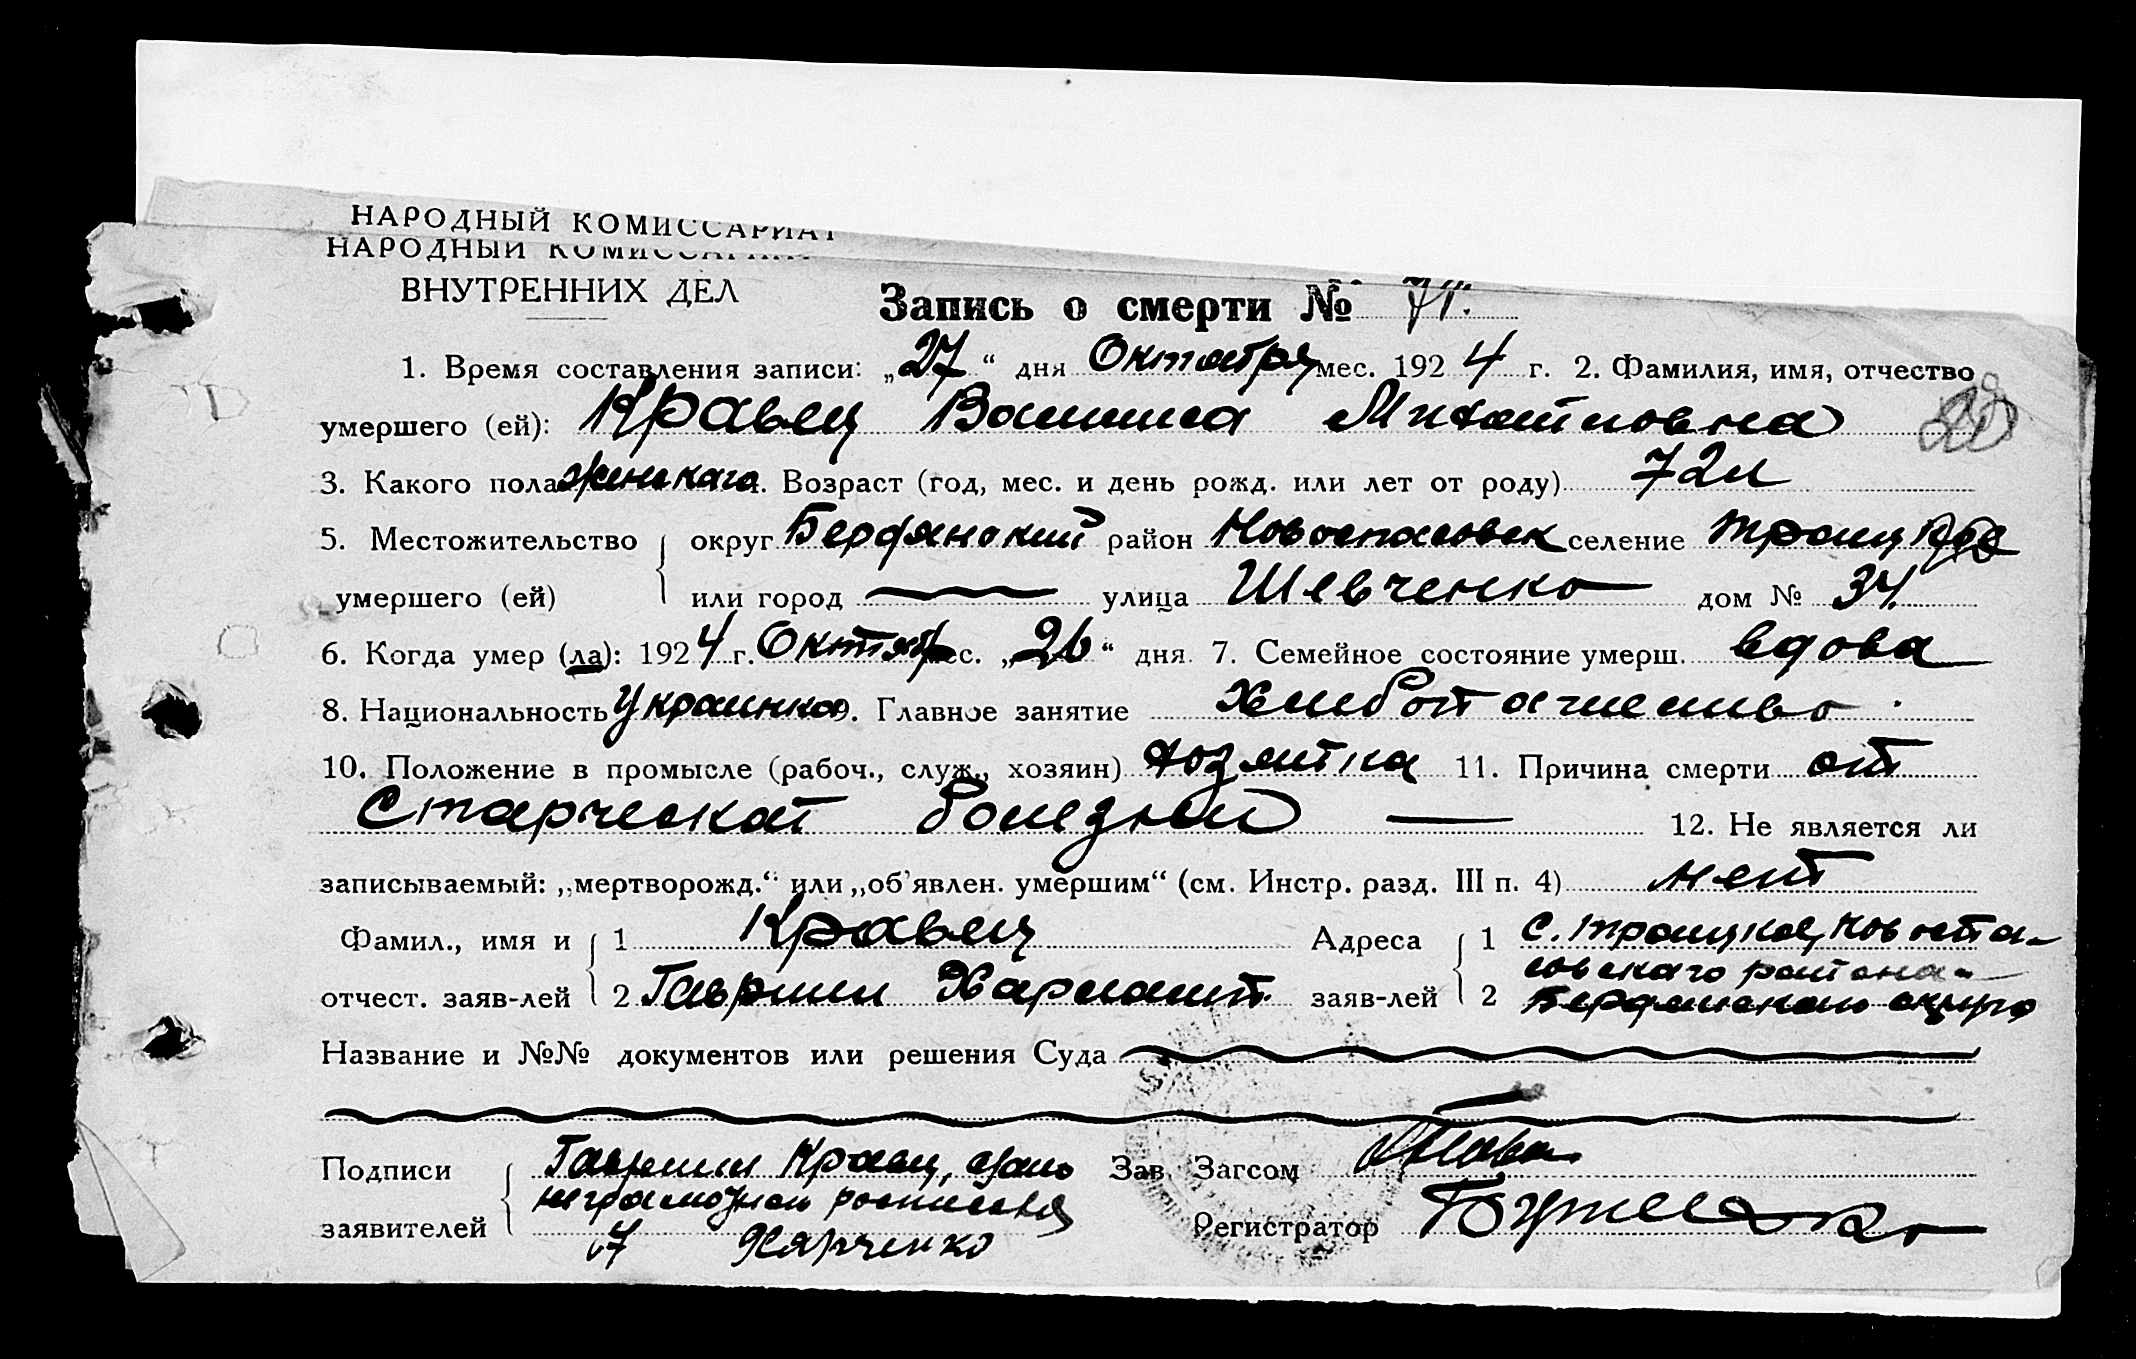 НАРОДНЫЙ КОМИССАРИАТ
НАРОДНЫЙ КОМИССАРИАТ
ВНУТРЕННИХ ДЕЛ
Запись о смерти № 71.
1. Время составления записи: „27“ дня Октября мес. 1924 г. 2. Фамилия, имя, отчество
умершего (ей): Кравец Михайловна
3. Какого пола женского 4. Возраст (год, мес. и день рожд. или лет от роду) 72 л
5. Местожительство округ Бердянский район Новоспасовск селение Троицкое
умершего (ей) или город улица Шевченко дом № 34.
6. Когда умер (ла): 1924 г. Октябр мес. „26“ дня. 7. Семейное состояние умерш. вдова
8. Национальность Украинка 9. Главное занятие Хлебопашество
10. Положение в промысле (рабоч., служ., хозяин) хозяйка 11. Причина смерти от
Старческой болезни 12. Не является ли
записываемый: „мертворожд.“ или „об'явлен. умершим“ (см. Инстр. разд. III п. 4) нет
Фамил., имя и 1 Кравец Адреса 1 с. Троицкое, Новоспа-
совского района
отчест. заяв-лей 2 Гавриил заяв-лей 2 Бердянского округа
Название и №№ документов или решения Суда
Подписи Гавриил Кравец, Зав. Загсом
неграмотный
заявителей Харченко Регистратор